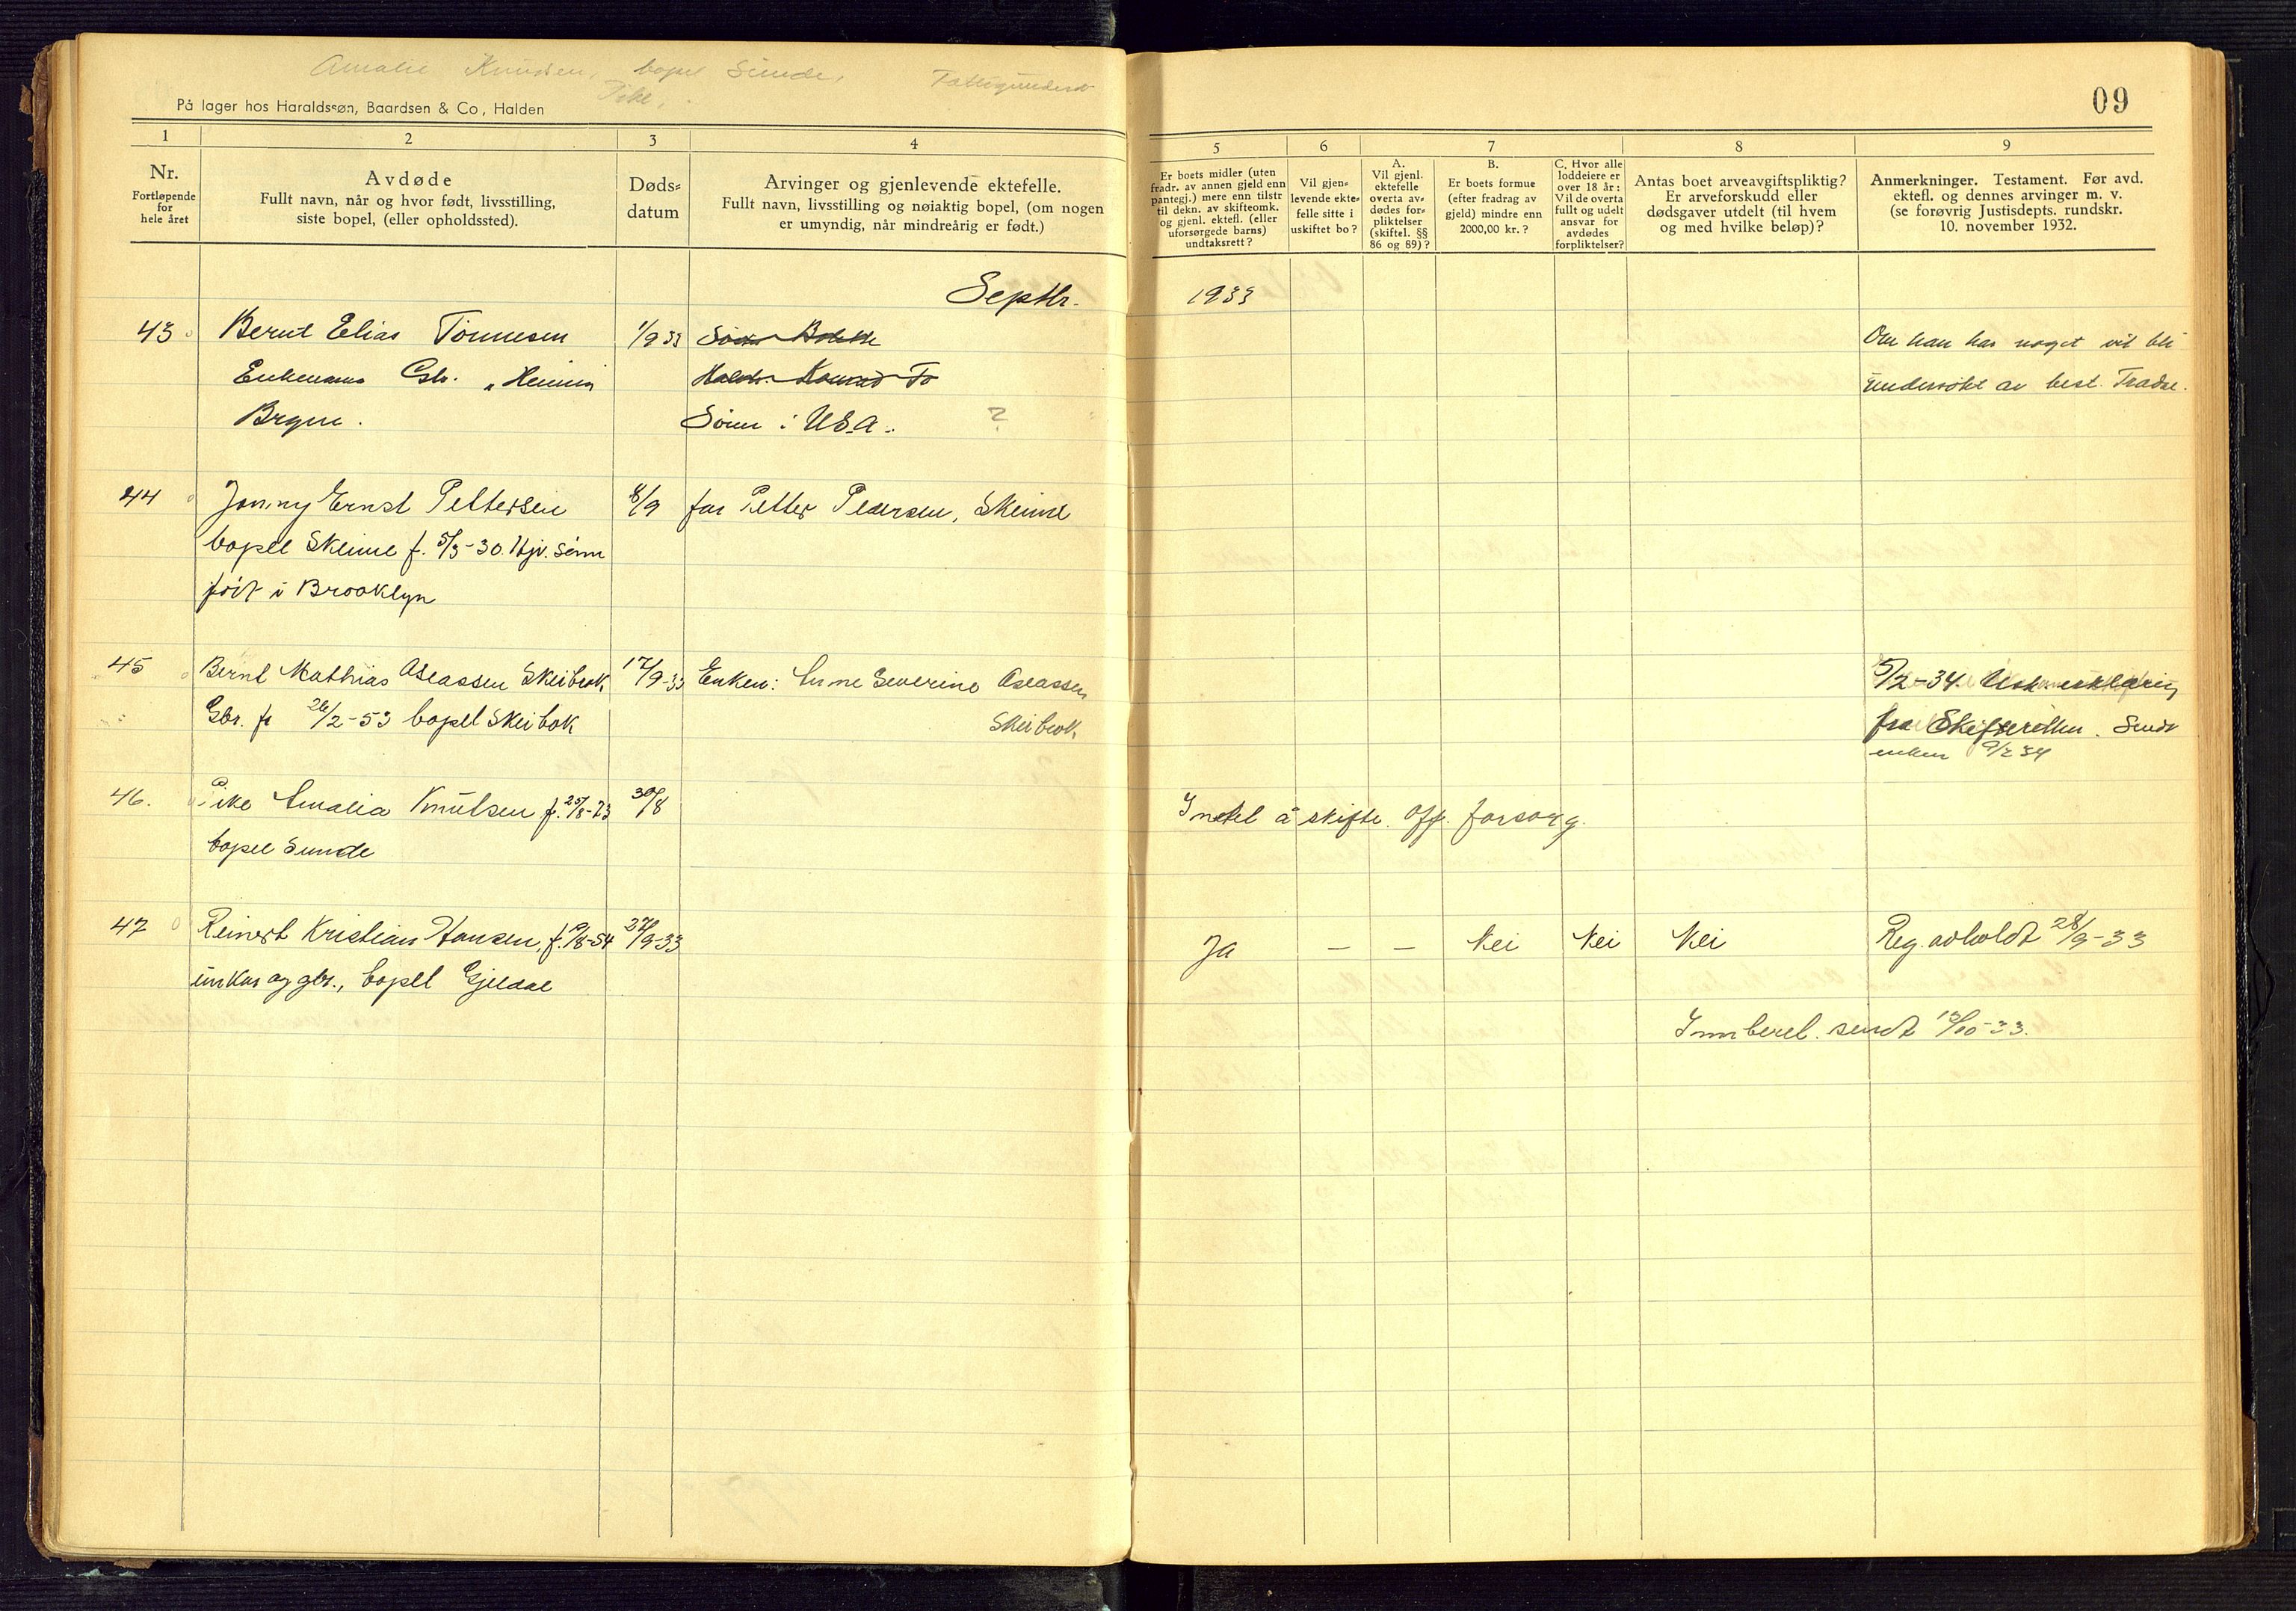 Amalie Knudsen, bopel Sunde,
Pike,
På lager hos Haraldssøn, Baardsen & Co, Halden
09
1 2 3 4 5 6 7 8 9
Nr.
Fortløpende
for
hele året
Avdøde
Fullt navn, når og hvor født, livsstilling,
siste bopel, (eller opholdssted).
Døds-
datum
Arvinger og gjenlevende ektefelle.
Fullt navn, livsstilling og nøiaktig bopel, (om nogen
er umyndig, når mindreårig er født.)
Er boets midler (uten
fradr. av annen gjeld enn
pantegj.) mere enn tilstr
til dekn. av skifteomk.
og gjenl. ektefl. (eller
uforsørgede barns)
undtaksrett?
Vil gjen-
levende ekte-
felle sitte i
uskiftet bo?
A.
Vil gjenl.
ektefelle
overta av-
dødes for-
pliktelser
(skiftel. §§
86 og 89)?
B.
Er boets formue
(efter fradrag av
gjeld) mindre enn
2000,00 kr.?
C. Hvor alle
loddeiere er
over 18 år:
Vil de overta
fullt og udelt
ansvar for
avdødes
forpliktelser?
Antas boet arveavgiftspliktig?
Er arveforskudd eller
dødsgaver utdelt (til hvem
og med hvilke beløp)?
Anmerkninger. Testament. Før avd.
ektefl. og dennes arvinger m. v.
(se forøvrig Justisdepts. rundskr.
10. november 1932.
Septbr. 1933
43 Bernt Elias Tönnesen 1/9 33
Om han har noget vil bli
Enkemann Gbr.
undersökt av best.
Bryne.
Sönn i USA. ?
44 Jonny Ernst Pettersen 8/9 far Petter Pedersen, Skeime
bopel Skeime f. 5/3-30. Hjv. sönn
föit i Brooklyn
45 Bernt Mathias Aslassen Skeibrok 17/9-33 Enken: Anne Severine Aslassen
Skeibrok
Gbr. f. 26/2-53 bopel Skeibok
5/2-34
fra Skifteretten. Sendt
enken 9/2 34
46. Pike Amalia Knutsen f. 25/8-73 30/8 Intet å skifte. Off. forsorg.
bopel Sunde
47 Reinert Kristian Hansen, f. 9/8-54 27/9-33 Ja — — Nei Nei Nei Reg. avholdt 28/9-33
unkar og gbr., bopel Gjeldal
Innberet. sendt 13/10-33.